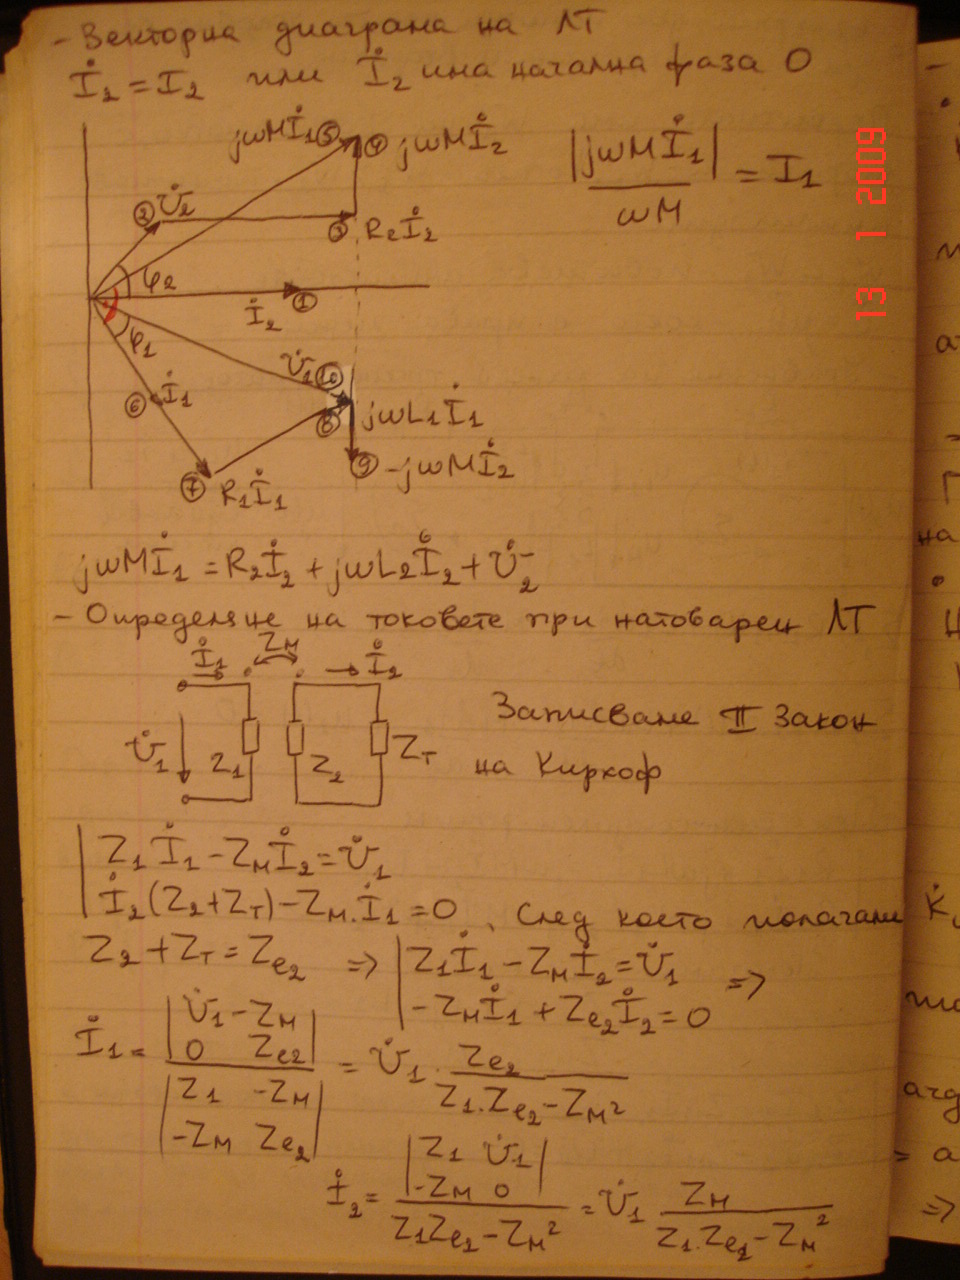 - Векторна диаграма на ЛТ
İ₂ = I₂ или İ₂ има начална фаза 0
jωMİ₁ ⑤ ④ jωMİ₂
|jωMİ₁| / ωM = I₁
② U̇₂
③ R₂İ₂
φ₂
İ₂ ①
φ₁
U̇₁ ⑩
⑥ İ₁
⑧ jωL₁İ₁
⑨ -jωMİ₂
⑦ R₁İ₁
jωMİ₁ = R₂İ₂ + jωL₂İ₂ + U̇₂
- Определяне на токовете при натоварен ЛТ
İ₁ Zм İ₂
U̇₁ Z₁ Z₂ Zт
Записваме II Закон
на Кирхоф
| Z₁İ₁ - ZмİI₂ = U̇₁
| İ₂(Z₂+Zт) - Zм.İ₁ = 0, След което полагаме
Z₂ + Zт = Ze₂ => | Z₁İ₁ - Zмİ₂ = U̇₁ =>
| -Zмİ₁ + Ze₂İ₂ = 0
İ₁ = |U̇₁ -Zм; 0 Ze₂| / |Z₁ -Zм; -Zм Ze₂| = U̇₁ . Ze₂ / (Z₁.Ze₂ - Zм²)
İ₂ = |Z₁ U̇₁; -Zм 0| / (Z₁Ze₂ - Zм²) = U̇₁ Zм / (Z₁.Ze₂ - Zм²)
13 1 2009